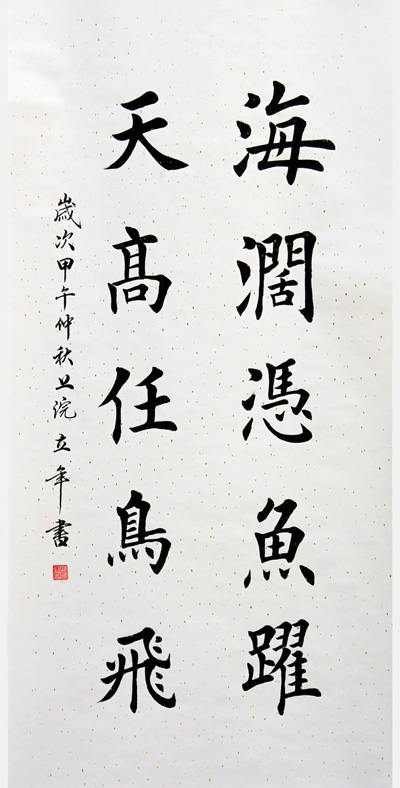 海濶憑魚躍
天高任鳥飛
歲次甲午仲秋上浣立年書